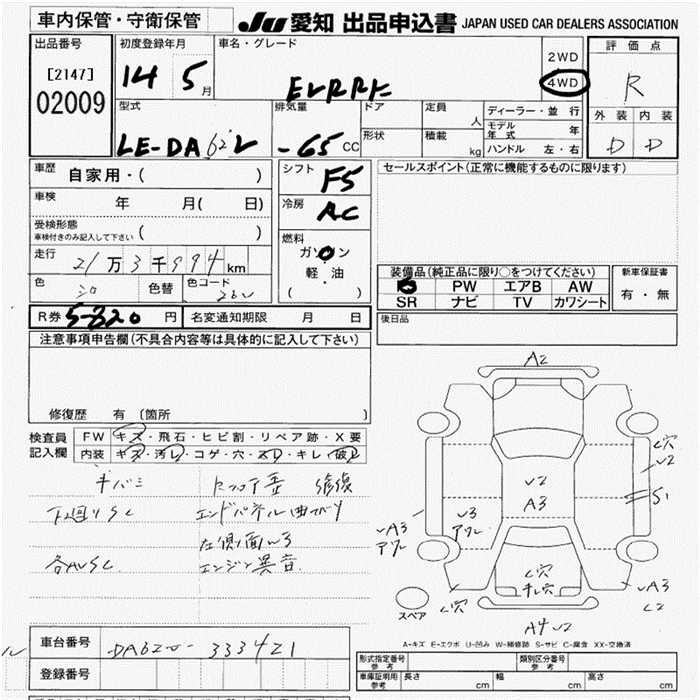 車内保管・守衛保管
JU 愛知 出品申込書 JAPAN USED CAR DEALERS ASSOCIATION
出品番号
[2147]
02009
初度登録年月
14 5 月
車名・グレード
2WD
4WD
評価点
R
型式
LE-DA62V
排気量
-65 CC
ドア
定員 人
形状
積載 kg
ディーラー・並行
モデル年式 年
ハンドル 左・右
外装 内装
D D
車歴 自家用・( )
車検 年 月( 日)
受検形態
車検付きのみ記入して下さい ( )
走行 21万3千994 km
色 シロ 色替 色コード 26U
シフト F5
冷房 AC
燃料
ガソリン
軽・油
( )
セールスポイント(正常に機能するものに限ります)
装備品(純正品に限り○をつけてください)
PW エアB AW
SR ナビ TV カワシート
新車保証書
有・無
R券 5-820 円 名変通知期限 月 日
後日品
注意事項申告欄(不具合内容等は具体的に記入して下さい)
修復歴 有 (箇所
検査員
記入欄
FW キズ・飛石・ヒビ割・リペア跡・X要
内装 キズ・汚レ・コゲ・穴・スレ・キレ・破レ
キバミ
修復
下回りSC
エンドパネル曲がり
左側面
各AVSC
エンジン異音
A2
穴
U2
S1
U2
A3
U3
アワレ
UA3
アワレ
穴
チレ穴
UA3
L2
穴
A4 U2
スペア
A-キズ E-エクボ U-凹み W-補修跡 S-サビ C-腐食 XX-交換済
車台番号 DA62V-333421
登録番号
形式指定番号
参考
類別区分番号
参考
車庫証明用
参考
長さ cm 幅 cm 高さ cm